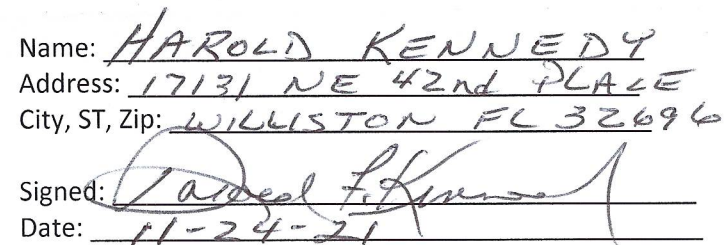 Name: HAROLD KENNEDY
Address: 17131 NE 42nd PLACE
City, ST, Zip: WILLISTON FL 32696
Signed: Harold F. Kennedy
Date: 11-24-21